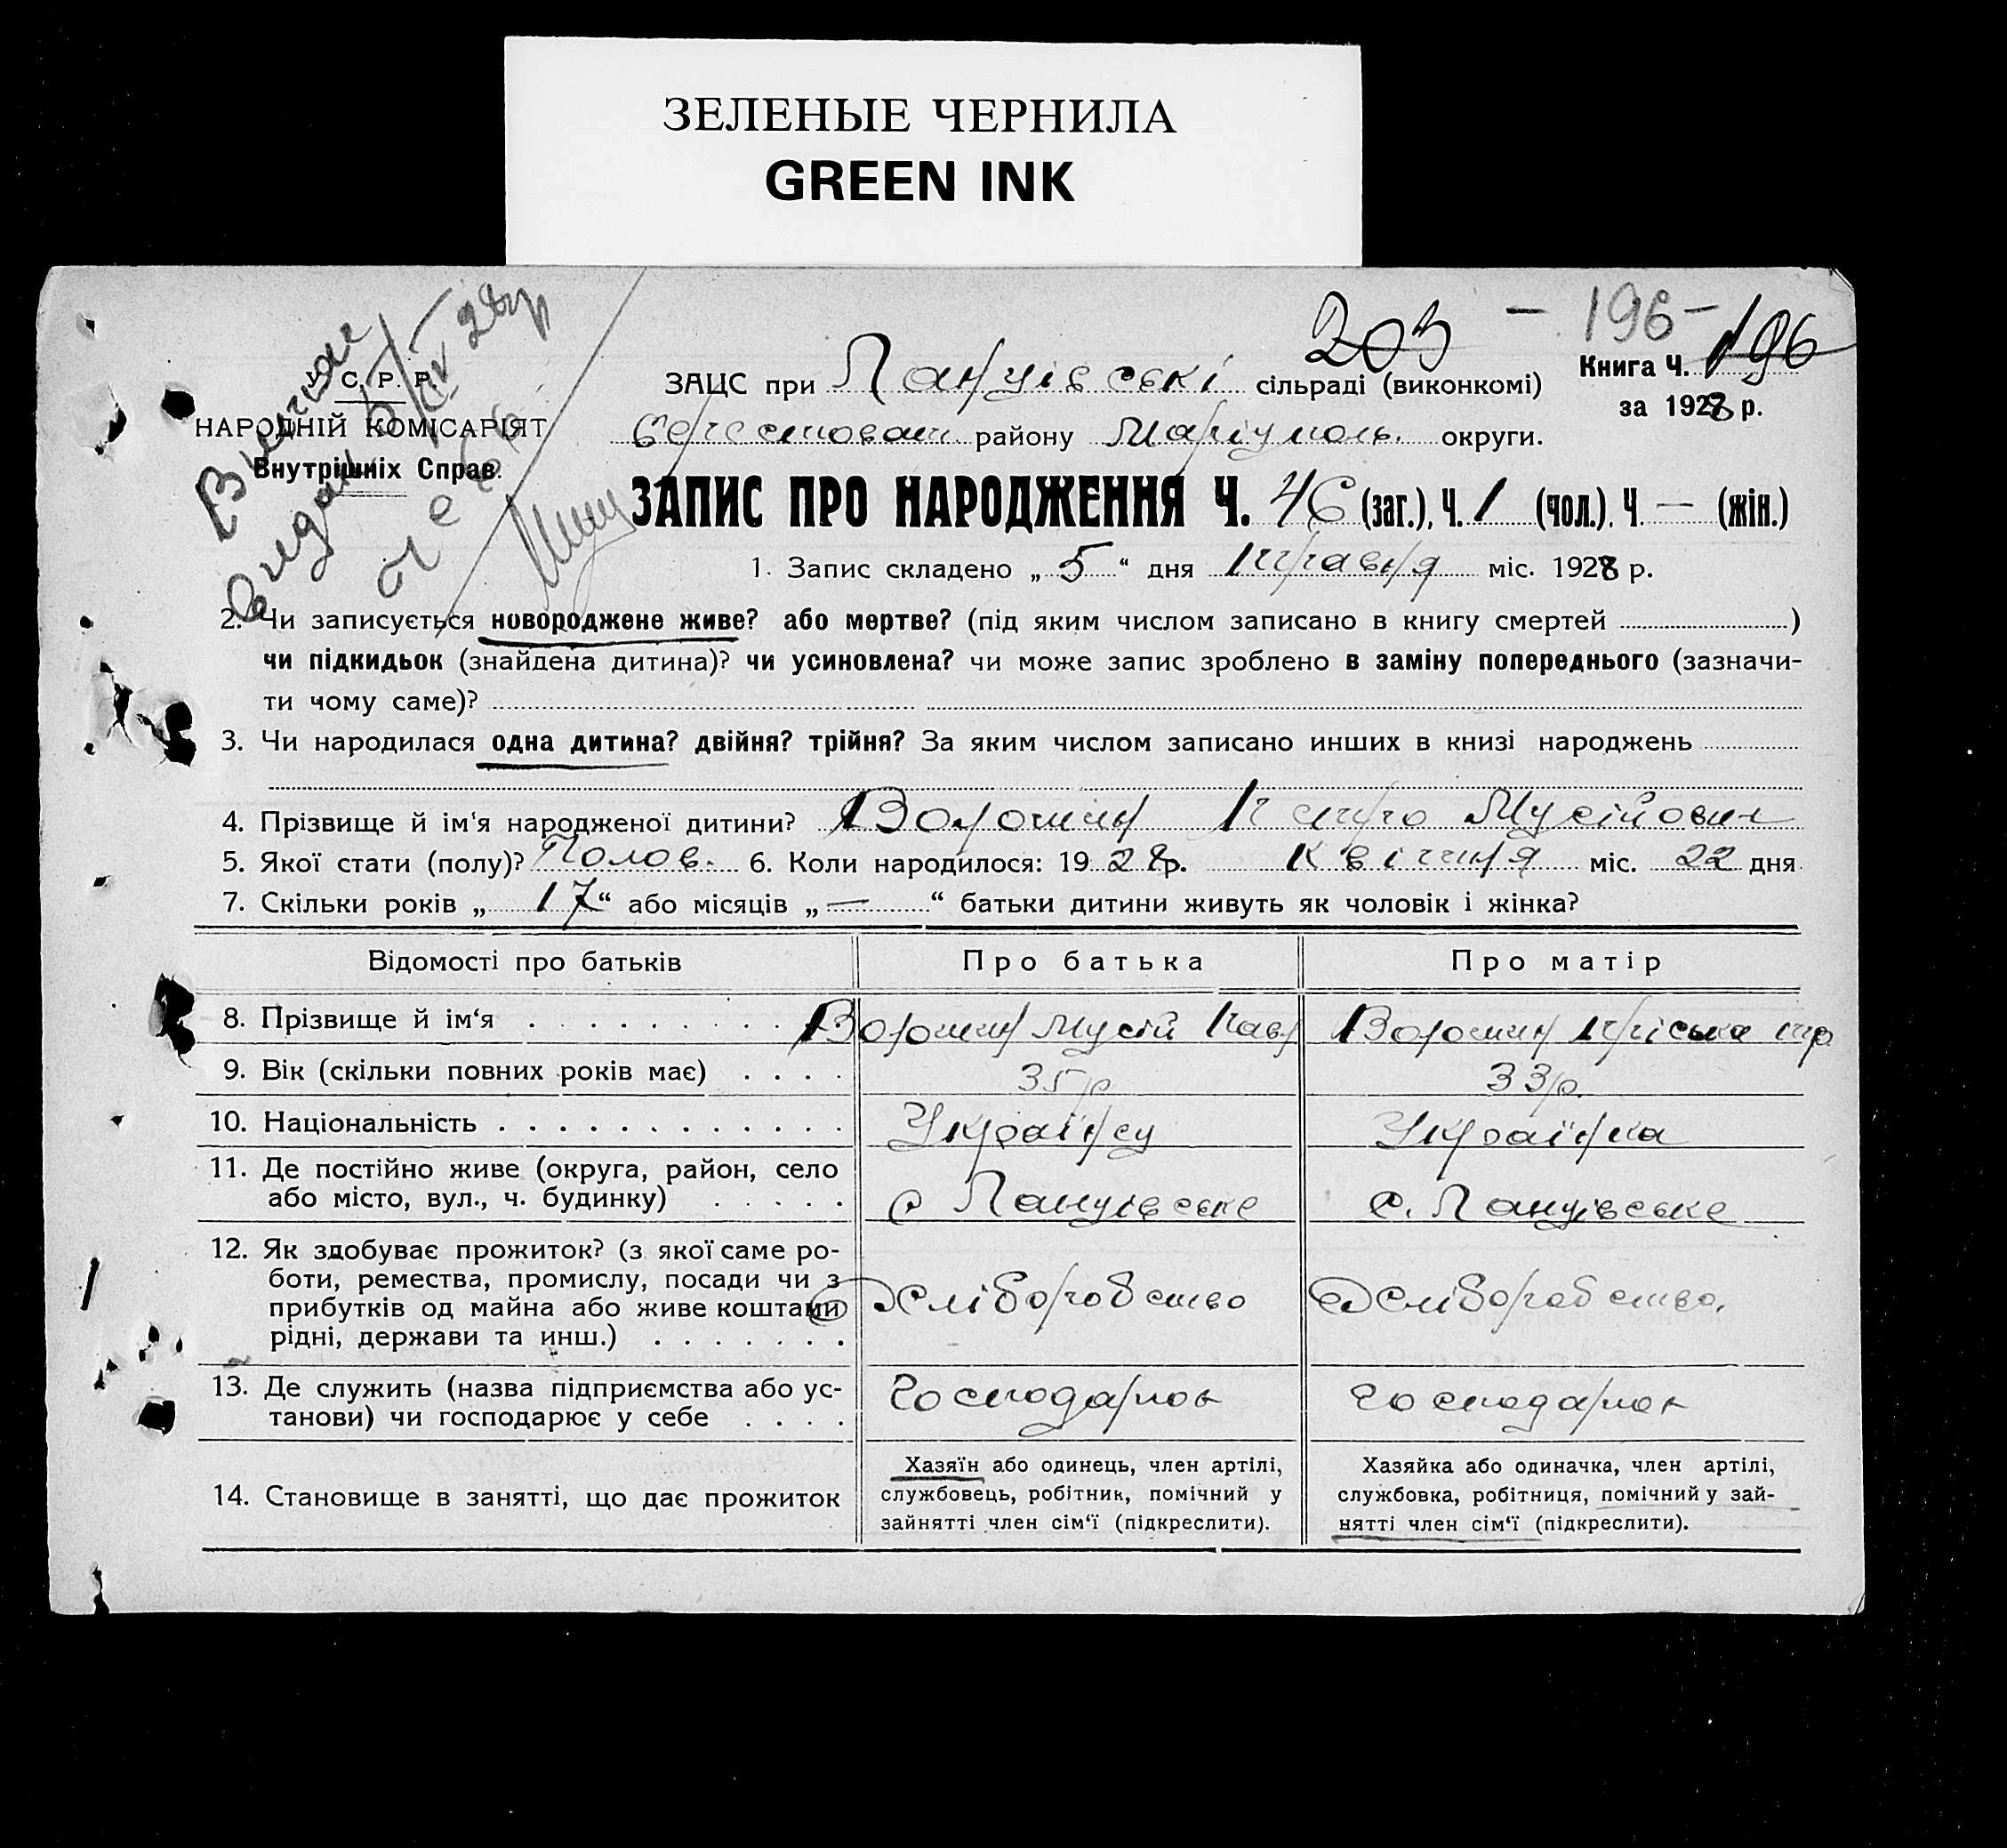 ЗЕЛЕНЫЕ ЧЕРНИЛА
GREEN INK
203 – 196 –
У. С. Р. Р.
НАРОДНІЙ КОМІСАРІЯТ
Внутрішніх Справ.
ЗАЦС при Ланцівські сільраді (виконкомі)
Книга Ч. 196
за 1928 р.
району Маріуполь. округи.
ЗАПИС ПРО НАРОДЖЕННЯ Ч. 46 (заг.), Ч. 1 (чол.), Ч. — (жін.)
1. Запис складено „ 5 “ дня травня міс. 1928 р.
2. Чи записується новороджене живе? або мертве? (під яким числом записано в книгу смертей )
чи підкидьок (знайдена дитина)? чи усиновлена? чи може запис зроблено в заміну попереднього (зазначи-
ти чому саме)?
3. Чи народилася одна дитина? двійня? трійня? За яким числом записано инших в книзі народжень
4. Прізвище й ім‘я народженої дитини? Ворошин Петро Мусійович
5. Якої стати (полу)? Полов. 6. Коли народилося: 1928р. Квітня міс. 22 дня
7. Скільки років „ 17 “ або місяців „ — “ батьки дитини живуть як чоловік і жінка?
Відомості про батьків Про батька Про матір
8. Прізвище й ім‘я Ворошин Мусій Ворошин
9. Вік (скільки повних років має) 35 р 33 р.
10. Національність Українец Українка
11. Де постійно живе (округа, район, село
або місто, вул., ч. будинку) с Ланцівське с. Ланцівське
12. Як здобуває прожиток? (з якої саме ро-
боти, ремества, промислу, посади чи з
прибутків од майна або живе коштами
рідні, держави та инш.) Хліборобство Хліборобство.
13. Де служить (назва підприємства або ус-
танови) чи господарює у себе Господарює Господарює
14. Становище в занятті, що дає прожиток
Хазяїн або одинець, член артілі,
службовець, робітник, помічний у
зайнятті член сім‘ї (підкреслити).
Хазяйка або одиначка, член артілі,
службовка, робітниця, помічний у зай-
нятті член сім‘ї (підкреслити).